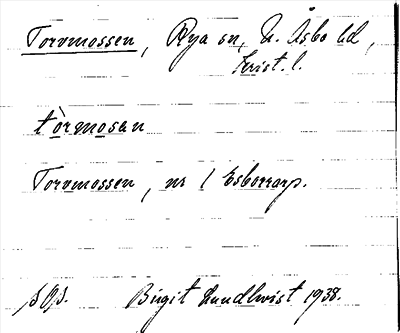 Torvmossen, Rya sn, N. Åsbo hd,
Krist. l.
tòrmosan
Torvmossen, nr 1 Esborrarp.
Birgit Lundkvist 1938.